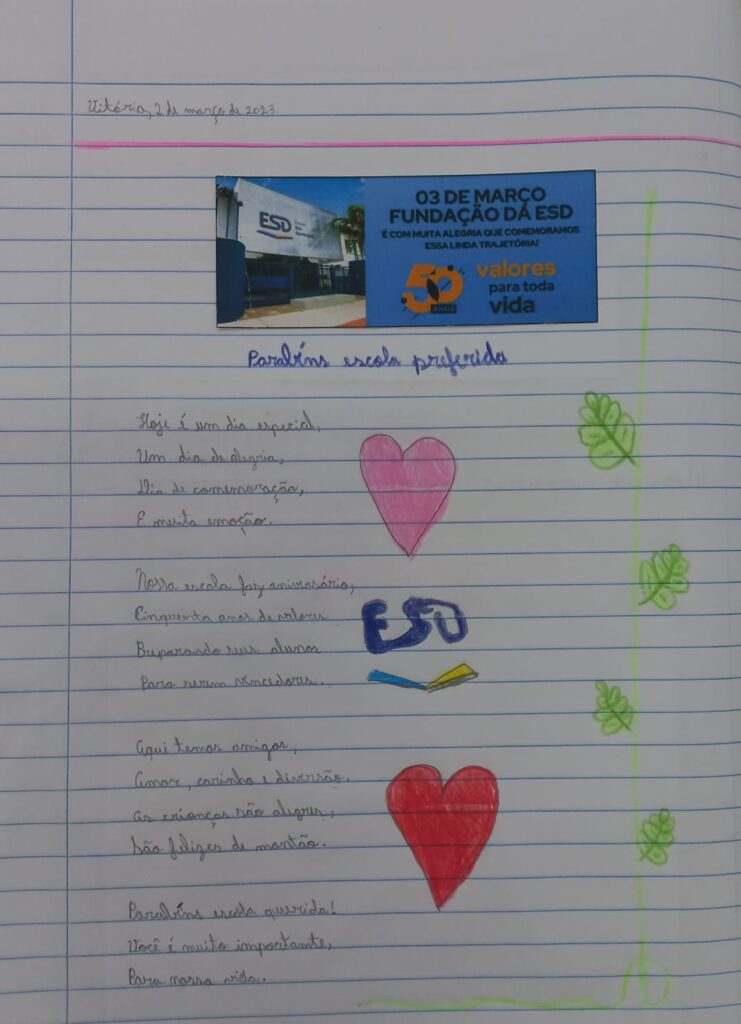 Vitória, 2 de março de 2023.
ESD
03 DE MARÇO
FUNDAÇÃO DA ESD
É COM MUITA ALEGRIA QUE COMEMORAMOS
ESSA LINDA TRAJETÓRIA!
50 ANOS
valores
para toda
vida
Parabéns escola preferida
Hoje é um dia especial,
Um dia de alegria,
Dia de comemoração,
E muita emoção.
Nossa escola faz aniversário,
Cinquenta anos de valores
Preparando seus alunos
Para serem vencedores.
ESD
Aqui temos amigos,
Amor, carinho e diversão.
As crianças são alegres,
São felizes de montão.
Parabéns escola querida!
Você é muito importante,
Para nossa vida.